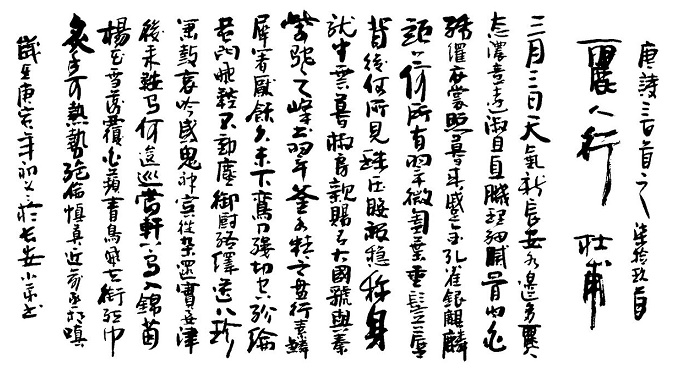 唐詩三百首之 柒拾玖首
麗人行 杜甫
三月三日天氣新長安水邊多麗人
態濃意遠淑且真肌理細膩骨肉勻
繡羅衣裳照暮春蹙金孔雀銀麒麟
頭上何所有翠微㔩葉垂鬢唇
背後何所見珠壓腰衱穩稱身
就中雲幕椒房親賜名大國虢與秦
紫駝之峰出翠釜水精之盤行素鱗
犀箸厭飫久未下鸞刀縷切空紛綸
黃門飛鞚不動塵御廚絡繹送八珍
簫鼓哀吟感鬼神賓從雜遝實要津
後來鞍馬何逡巡當軒下馬入錦茵
楊花雪落覆白蘋青鳥飛去銜紅巾
炙手可熱勢絕倫慎莫近前丞相嗔
歲在庚寅年於長安書